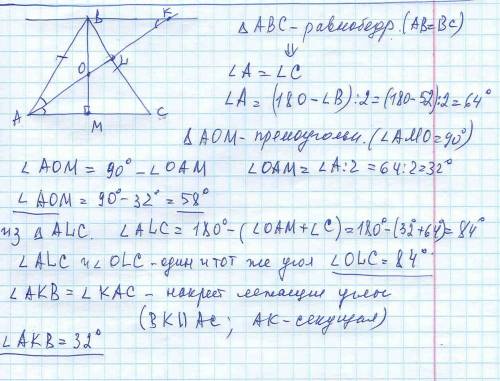 B
K
O
L
A
M
C
Δ ABC - равнобедр. (AB=BC)
⇓
∠A = ∠C
∠A = (180-∠B):2=(180-52):2=64°
Δ AOM - прямоугольн. (∠AMO=90°)
∠AOM = 90° - ∠OAM ∠OAM = ∠A:2 = 64:2=32°
∠AOM = 90°-32° = 58°
из Δ ALC. ∠ALC=180°-(∠OAM+∠C)=180°-(32°+64°)=84°
∠ALC и ∠OLC - один и тот же угол ∠OLC = 84°
∠AKB = ∠KAC - накрест лежащие углы
(BK || AC; AK - секущая)
∠AKB = 32°